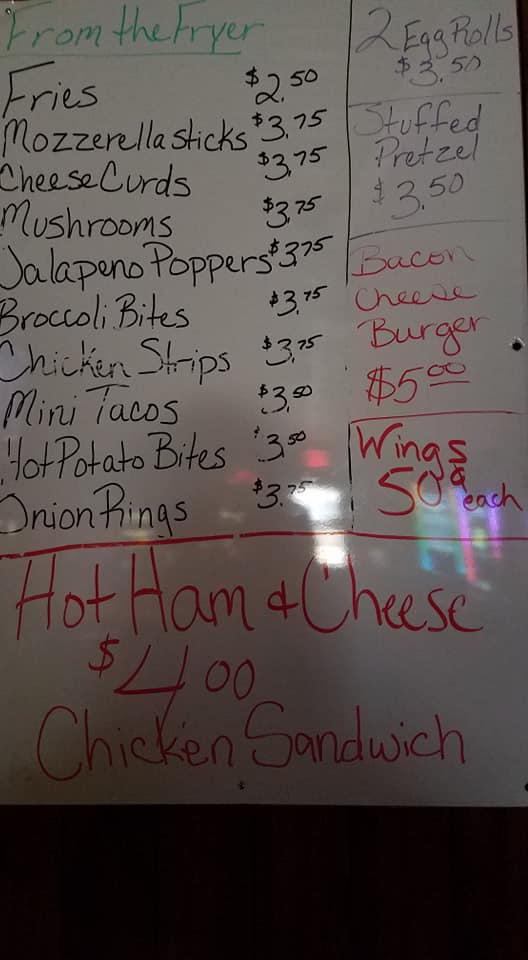 From the Fryer
Fries $2.50
Mozzerella sticks $3.75
Cheese Curds $3.75
Mushrooms $3.75
Jalapeno Poppers $3.75
Broccoli Bites $3.75
Chicken Strips $3.75
Mini Tacos $3.50
Hot Potato Bites $3.50
Onion Rings $3.75
2 Egg Rolls
$3.50
Stuffed
Pretzel
$3.50
Bacon
Cheese
Burger
$5.00
Wings
50¢ each
Hot Ham & Cheese
$4.00
Chicken Sandwich